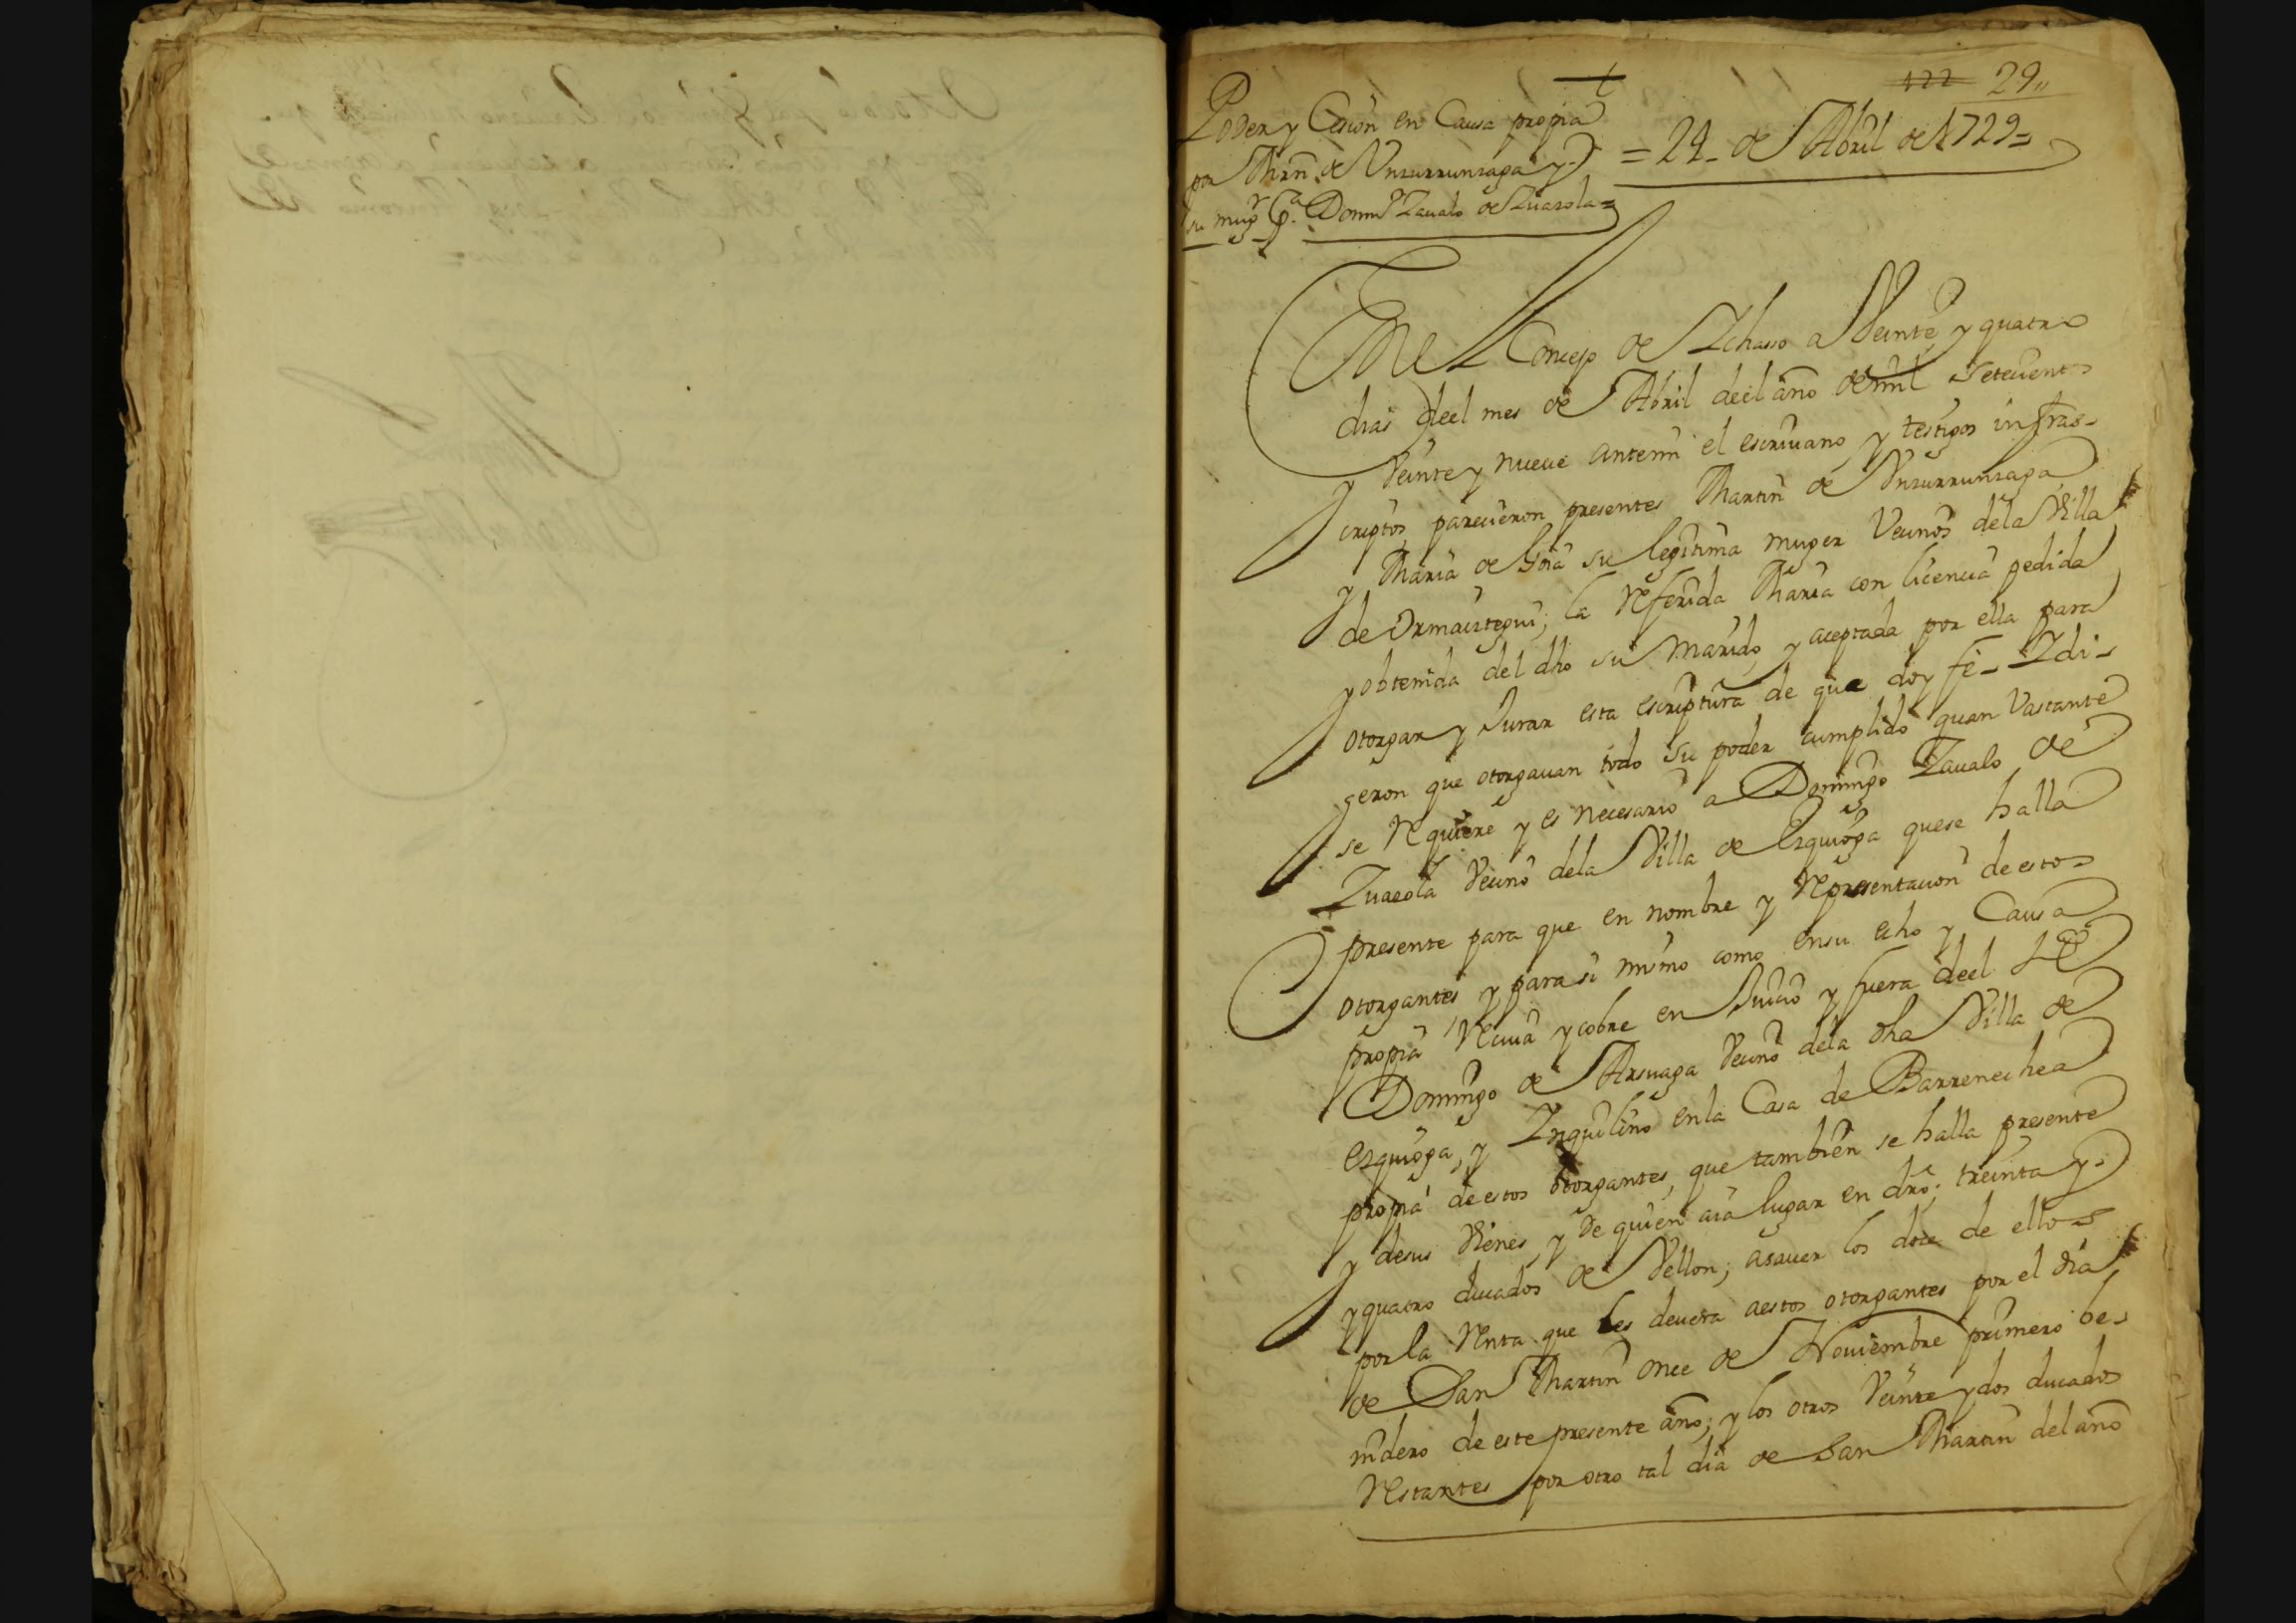 +
122 29,,
Poder y Cesion en Causa propia
por Mrn̄ de Vnzurrunzaga y
su mugr Pa. Domō Zavalo de Zuazola=
=24- de Abril de 1729=
En el Concejo de Ychasso a Veinte y quatro
dias deel mes de Abril deel año de mil Setecientos
y Veinte y nueve antemi el escrivano y testigos infraes-
criptos, parecieron presentes Martin de Vnzurrunzaga
y Maria de su legitima muger Vecinos dela Villa
de Ormaiztegui; la Referida Maria con licencia pedida
y obtenida del dho su Marido, y aceptada por ella para
otorgar y Jurar esta escriptura de que doy fe- Y di-
geron que otorgavan todo su poder cumplido quan Vastante
se Requiere y es necesario a Domingo Zavalo de
Zuazola Vecino dela Villa de Ezquioga quese halla
presente para que en nombre y Representacion de estos
otorgantes y para si mismo como ensu echo y Causa
propia Reciva y cobre en Juicio y fuera deel
Domingo de Arsuaga Vecino dela dha Villa de
Ezquioga, y Ynquilino enla Casa de Barrenechea
propia de estos otorgantes, que tambien se halla presente
y desus Vienes, y de quien aia lugar en dro; treinta y
y quatro ducados de Vellon; asaver los doce de ellos
por la Renta que les devera aestos otorgantes por el dia
de San Martin once de Noviembre primero be-
nidero de este presente año; y los otros Veinte y dos ducados
Restantes por otro tal dia de San Martin del año